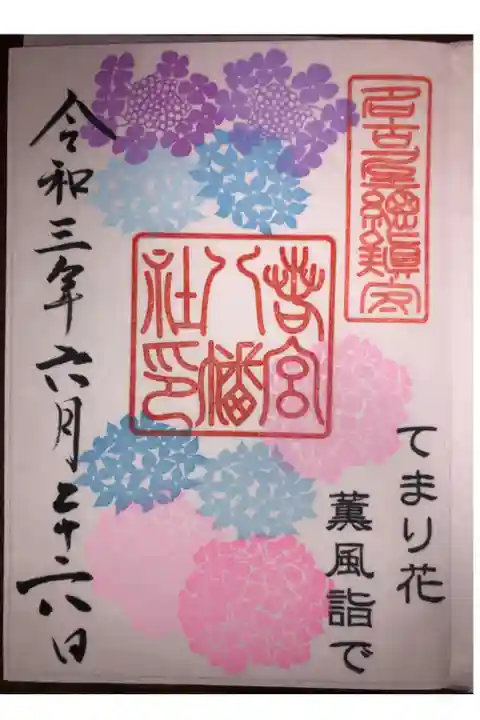 名古屋總鎮守
若宮
八幡
社印
てまり花
薫風詣で
令和三年六月二十六日